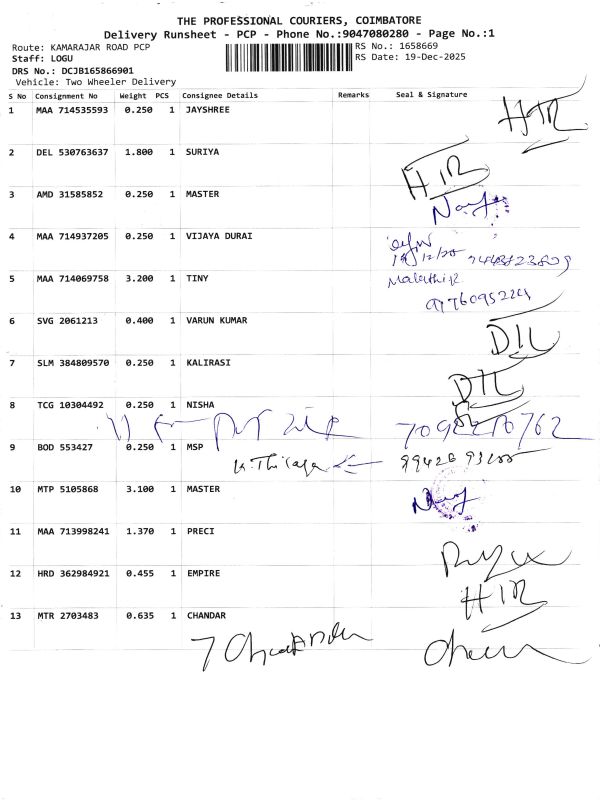 THE PROFESSIONAL COURIERS, COIMBATORE
Delivery Runsheet - PCP - Phone No.:9047080280 - Page No.:1
Route: KAMARAJAR ROAD PCP
RS No.: 1658669
Staff: LOGU
RS Date: 19-Dec-2025
DRS No.: DCJB165866901
Vehicle: Two Wheeler Delivery
S No Consignment No Weight PCS Consignee Details Remarks Seal & Signature
1 MAA 714535593 0.250 1 JAYSHREE HIR
2 DEL 530763637 1.800 1 SURIYA HIR
3 AMD 31585852 0.250 1 MASTER
4 MAA 714937205 0.250 1 VIJAYA DURAI
19/12/25
5 MAA 714069758 3.200 1 TINY
6 SVG 2061213 0.400 1 VARUN KUMAR DIL
7 SLM 384809570 0.250 1 KALIRASI DIL
8 TCG 10304492 0.250 1 NISHA
9 BOD 553427 0.250 1 MSP
10 MTP 5105868 3.100 1 MASTER
11 MAA 713998241 1.370 1 PRECI
12 HRD 362984921 0.455 1 EMPIRE HIR
13 MTR 2703483 0.635 1 CHANDAR